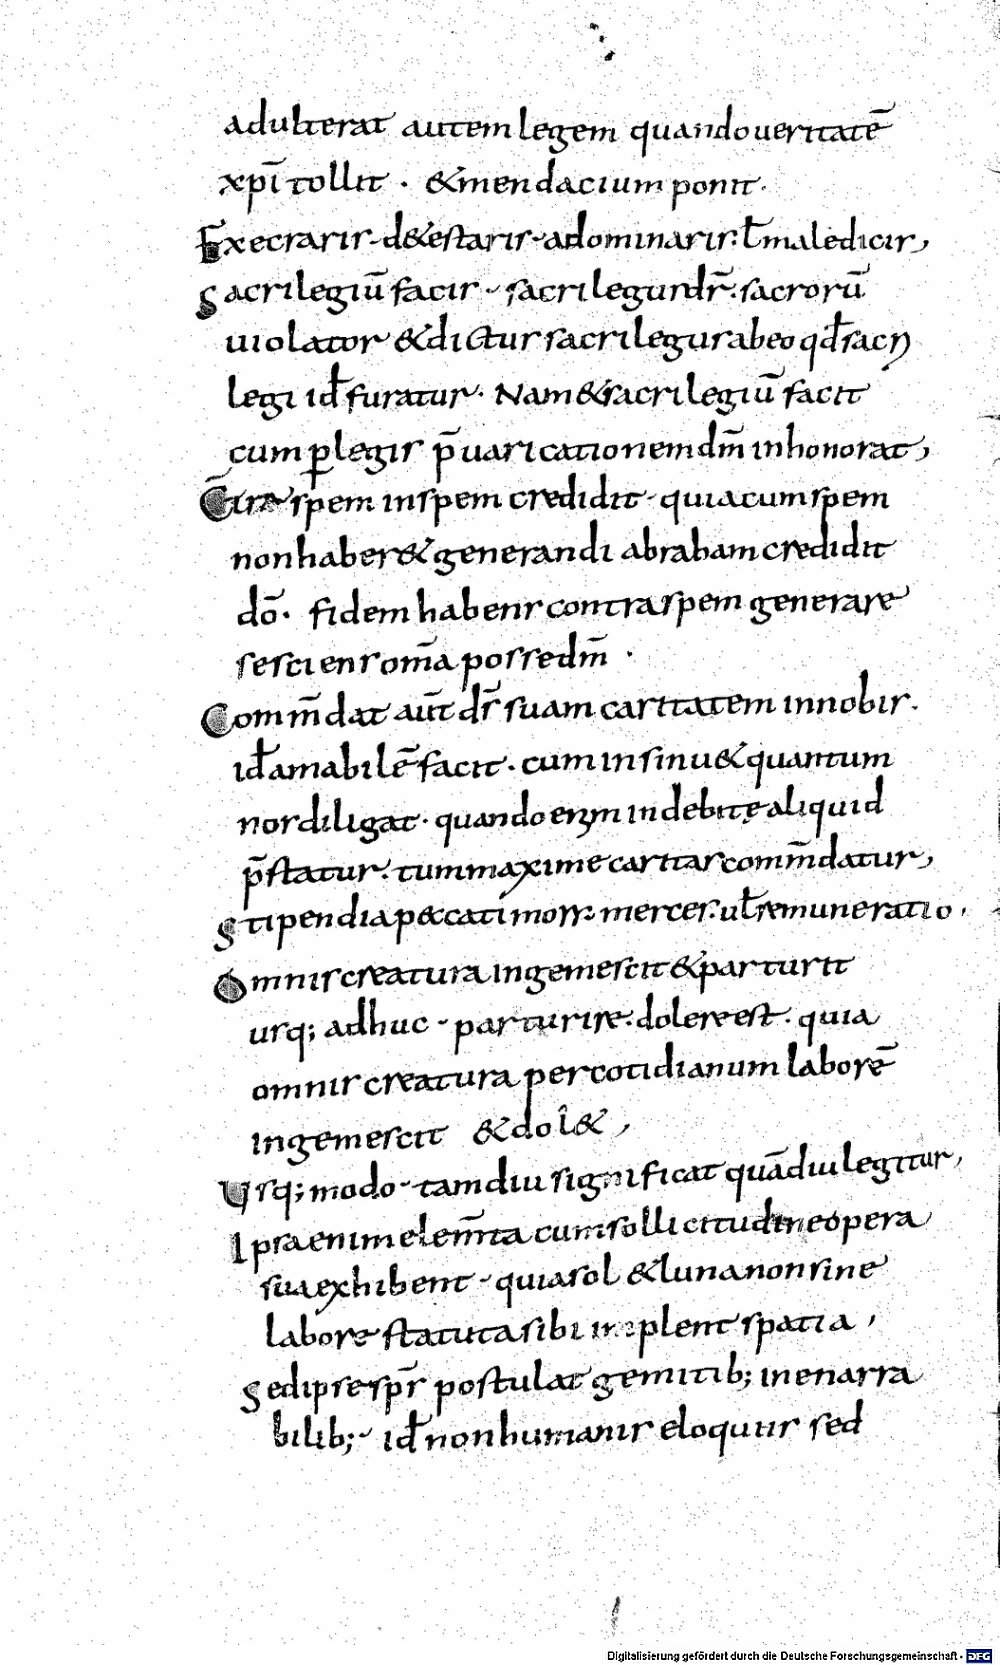 adulterat autem legem quando ueritatē
xp̄i tollit · & mendacium ponit ·
Execraris · d&estaris · adominaris · ł maledicis,
Sacrilegiū facis · sacrilegus dr̄ · sacrorū
uiolator & dictus sacrilegus ab eo qđ sacꝝ
legi id̄ furatur · Nam & sacrilegiū facit
cum ꝑ legis p̄uaricationem dm̄ inhonorat,
spem in spem credidit · quia cum spem
non haber& generandi abraham credidit
dō · fidem habens contra spem generare
se sciens om̄a posse dm̄ ·
Com̄dat aūt ds̄ suam caritatem in nobis ·
id̄ amabilē facit · cum insinu& quantum
nos diligat · quando enim indebitę aliquid
p̄statur · tum maxime caritas com̄datur,
Stipendia peccati mors · merces · uł remuneratio ·
Omnis creatura ingemescit & parturit
usq; adhuc · parturire · dolere est · quia
omnis creatura per cotidianum laborē
ingemescit & dol&,
Usq; modo · tamdiu significat quādiu legitur,
Ipsa enim elem̄ta cum sollicitudine opera
sua exhibent · quia sol & luna non sine
labore statuta sibi implent spatia,
Sed ipse sps̄ postulat gemitib; inenarra
bilib; · id̄ non humanis eloquiis sed
Digitalisierung gefördert durch die Deutsche Forschungsgemeinschaft - DFG